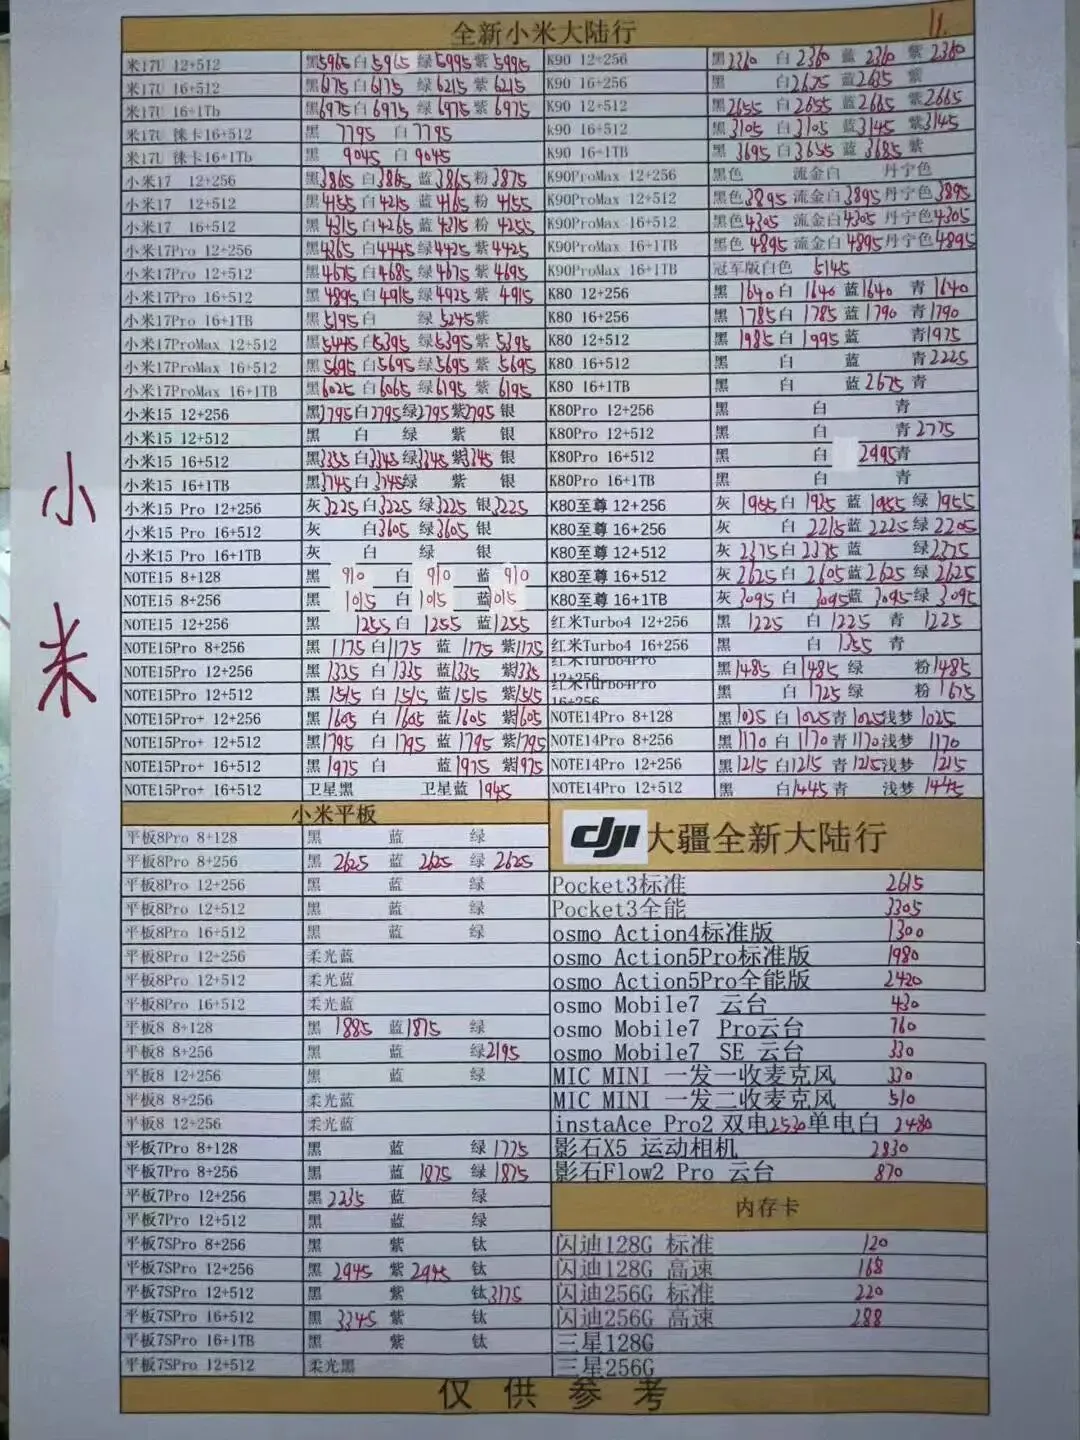 全新小米大陆行
11.
小米
米17U 12+512 黑5965 白5965 绿5995 紫5995
米17U 16+512 黑6175 白6175 绿6215 紫6215
米17U 16+1Tb 黑6975 白6975 绿6975 紫6975
米17U 徕卡16+512 黑 7795 白7795
米17U 徕卡16+1Tb 黑 9045 白9045
小米17 12+256 黑3865 白3865 蓝3865 粉3875
小米17 12+512 黑4155 白4215 蓝4165 粉4155
小米17 16+512 黑4315 白4265 蓝4315 粉4255
小米17Pro 12+256 黑4365 白4445 绿4425 紫4425
小米17Pro 12+512 黑4675 白4685 绿4675 紫4695
小米17Pro 16+512 黑4895 白4915 绿4925 紫4915
小米17Pro 16+1TB 黑5195 白 绿5245 紫
小米17ProMax 12+512 黑5445 白5395 绿5395 紫5395
小米17ProMax 16+512 黑5695 白5695 绿5695 紫5695
小米17ProMax 16+1TB 黑6025 白6065 绿6195 紫6195
小米15 12+256 黑2795 白2795 绿2795 紫2795 银
小米15 12+512 黑 白 绿 紫 银
小米15 16+512 黑3355 白3345 绿3345 紫3345 银
小米15 16+1TB 黑3745 白3745 绿 紫 银
小米15 Pro 12+256 灰3225 白3225 绿3225 银3225
小米15 Pro 16+512 灰 白3605 绿3605 银
小米15 Pro 16+1TB 灰 白 绿 银
NOTE15 8+128 黑 910 白 910 蓝 910
NOTE15 8+256 黑 1015 白 1015 蓝1015
NOTE15 12+256 黑 1255 白 1255 蓝1255
NOTE15Pro 8+256 黑 1175 白1175 蓝 1175 紫1175
NOTE15Pro 12+256 黑 1335 白 1335 蓝1335 紫1335
NOTE15Pro 12+512 黑 1515 白 1515 蓝1515 紫1515
NOTE15Pro+ 12+256 黑 1605 白 1605 蓝1605 紫1605
NOTE15Pro+ 12+512 黑1795 白 1795 蓝1795 紫1795
NOTE15Pro+ 16+512 黑1975 白 蓝1975 紫1975
NOTE15Pro+ 16+512 卫星黑 卫星蓝 1945
K90 12+256 黑2360 白 2360 蓝 2360 紫 2360
K90 16+256 黑 白2675 蓝2635 紫
K90 12+512 黑2655 白2655 蓝2665 紫2665
k90 16+512 黑3105 白3105 蓝3145 紫3145
K90 16+1TB 黑 3695 白3655 蓝 3685 紫
K90ProMax 12+256 黑色 流金白 丹宁色
K90ProMax 12+512 黑色3895 流金白3895 丹宁色3895
K90ProMax 16+512 黑色4305 流金白4305 丹宁色4305
K90ProMax 16+1TB 黑色 4895 流金白4895 丹宁色4895
K90ProMax 16+1TB 冠军版白色 5145
K80 12+256 黑 1640 白 1640 蓝1640 青 1640
K80 16+256 黑 1785 白 1785 蓝1790 青1790
K80 12+512 黑 1985 白 1995 蓝 青1975
K80 16+512 黑 白 蓝 青2225
K80 16+1TB 黑 白 蓝2675 青
K80Pro 12+256 黑 白 青
K80Pro 12+512 黑 白 青2775
K80Pro 16+512 黑 白 2995青
K80Pro 16+1TB 黑 白 青
K80至尊 12+256 灰 1955 白 1925 蓝 1955 绿 1955
K80至尊 16+256 灰 白 2215 蓝2225 绿2205
K80至尊 12+512 灰2375 白2375 蓝 绿2375
K80至尊 16+512 灰2625 白2605 蓝2625 绿2625
K80至尊 16+1TB 灰3095 白 3095 蓝3095 绿3095
红米Turbo4 12+256 黑 1225 白1225 青 1225
红米Turbo4 16+256 黑 白 1355 青
红米Turbo4Pro 12+256 黑1485 白1485 绿 粉1485
红米Turbo4Pro 16+256 黑 白 1725 绿 粉 1675
NOTE14Pro 8+128 黑1025 白 1025 青 1025 浅梦 1025
NOTE14Pro 8+256 黑1170 白 1170 青1170 浅梦 1170
NOTE14Pro 12+256 黑1215 白1215 青1215 浅梦 1215
NOTE14Pro 12+512 黑 白1445 青 浅梦 1445
小米平板
平板8Pro 8+128 黑 蓝 绿
平板8Pro 8+256 黑 2625 蓝 2625 绿2625
平板8Pro 12+256 黑 蓝 绿
平板8Pro 12+512 黑 蓝 绿
平板8Pro 16+512 黑 蓝 绿
平板8Pro 12+256 柔光蓝
平板8Pro 12+512 柔光蓝
平板8Pro 16+512 柔光蓝
平板8 8+128 黑 1885 蓝1875 绿
平板8 8+256 黑 蓝 绿2195
平板8 12+256 黑 蓝 绿
平板8 8+256 柔光蓝
平板8 12+256 柔光蓝
平板7Pro 8+128 黑 蓝 绿1775
平板7Pro 8+256 黑 蓝 1875 绿 1875
平板7Pro 12+256 黑2235 蓝 绿
平板7Pro 12+512 黑 蓝 绿
平板7SPro 8+256 黑 紫 钛
平板7SPro 12+256 黑 2945 紫 2945 钛
平板7SPro 12+512 黑 紫 钛3175
平板7SPro 16+512 黑 3345 紫 钛
平板7SPro 16+1TB 黑 紫 钛
平板7SPro 12+512 柔光黑
dji 大疆全新大陆行
Pocket3标准 2615
Pocket3全能 3305
osmo Action4标准版 1300
osmo Action5Pro标准版 1980
osmo Action5Pro全能版 2420
osmo Mobile7 云台 430
osmo Mobile7 Pro云台 760
osmo Mobile7 SE 云台 330
MIC MINI 一发一收麦克风 330
MIC MINI 一发二收麦克风 510
instaAce Pro2 双电2530单电白 2480
影石X5 运动相机 2830
影石Flow2 Pro 云台 870
内存卡
闪迪128G 标准 120
闪迪128G 高速 168
闪迪256G 标准 220
闪迪256G 高速 288
三星128G
三星256G
仅供参考